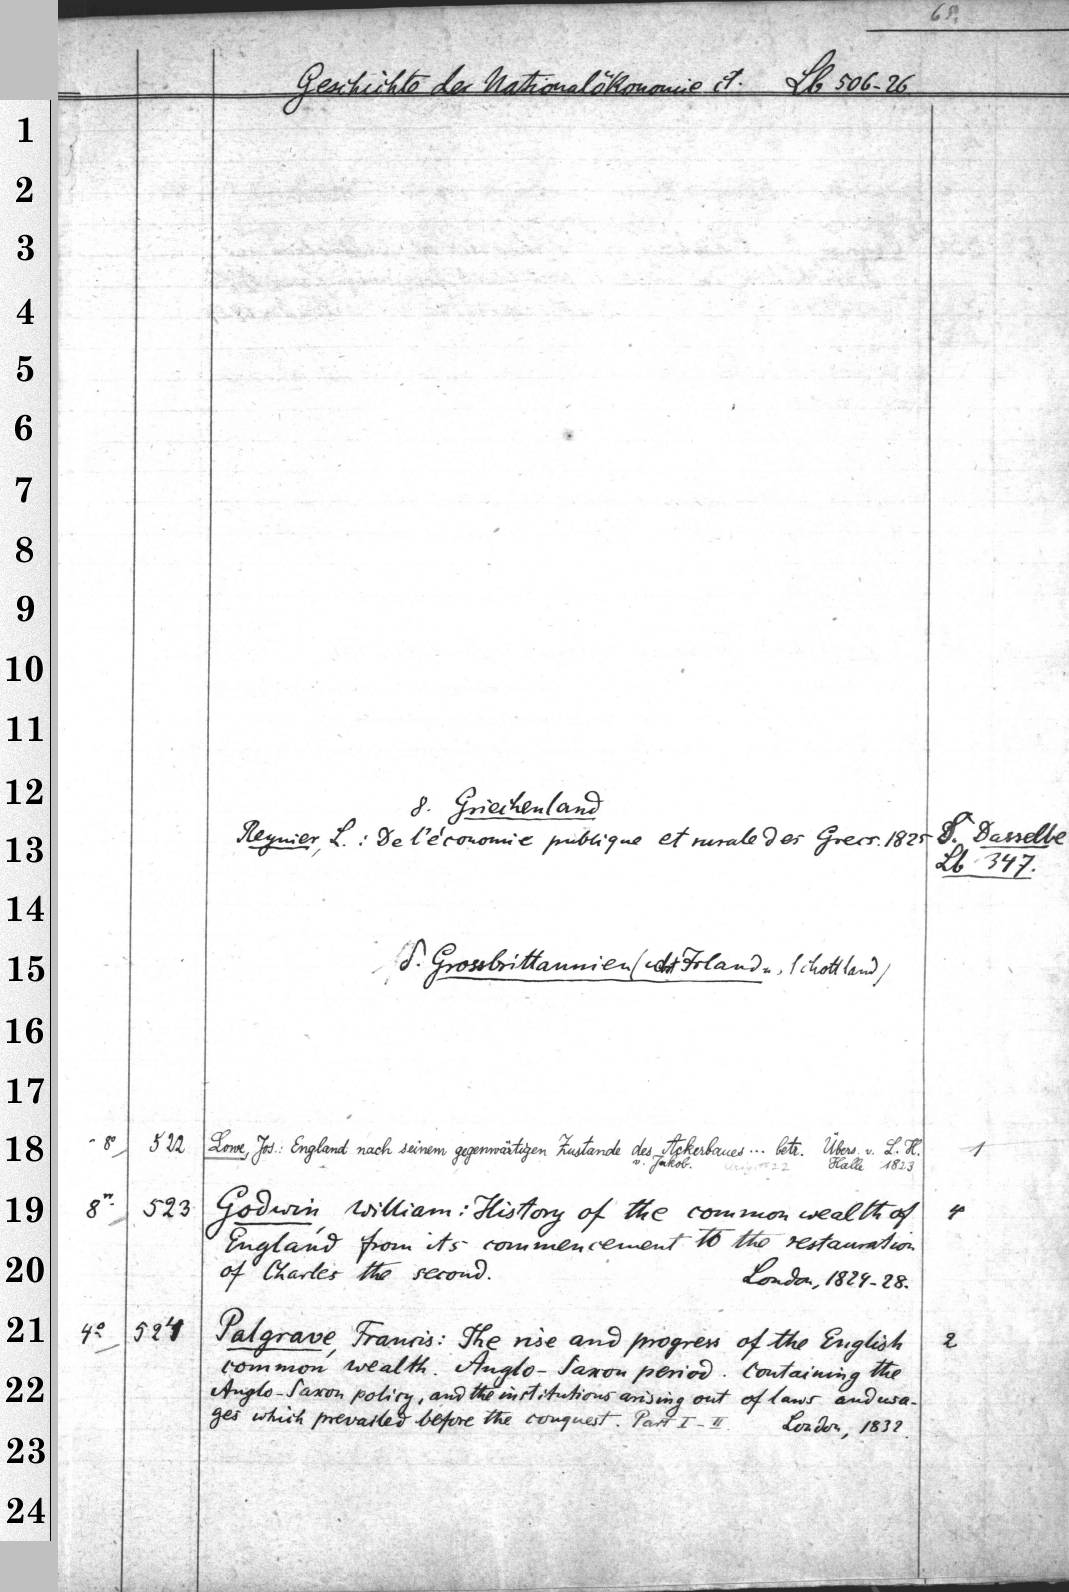 68.
Geschichte der Nationalökonomie ct. Lb 506-26
1
2
3
4
5
6
7
8
9
10
11
12
8. Griechenland
13
Reynier, L. : De l'économie publique et rurale des Grecs. 1825 S. Dasselbe
Lb 347.
14
15
Grossbrittannien ( Irland u. Schottland)
16
17
18
8° 522 Lowe, Jos.: England nach seinem gegenwärtigen Zustande des Ackerbaues ... betr. Übers. v. L. H. 1
v. Jakob. Halle 1823
19
8° 523 Godwin, William: History of the common wealth of 4
England from its commencement to the restauration
20
of Charles the second. London, 1824-28.
21
4° 524 Palgrave, Francis: The rise and progress of the English 2
common wealth. Anglo-Saxon period. containing the
22
Anglo-Saxon policy, and the institutions arising out of laws and usa-
ges which prevailed before the conquest. Part I-II London, 1832.
23
24